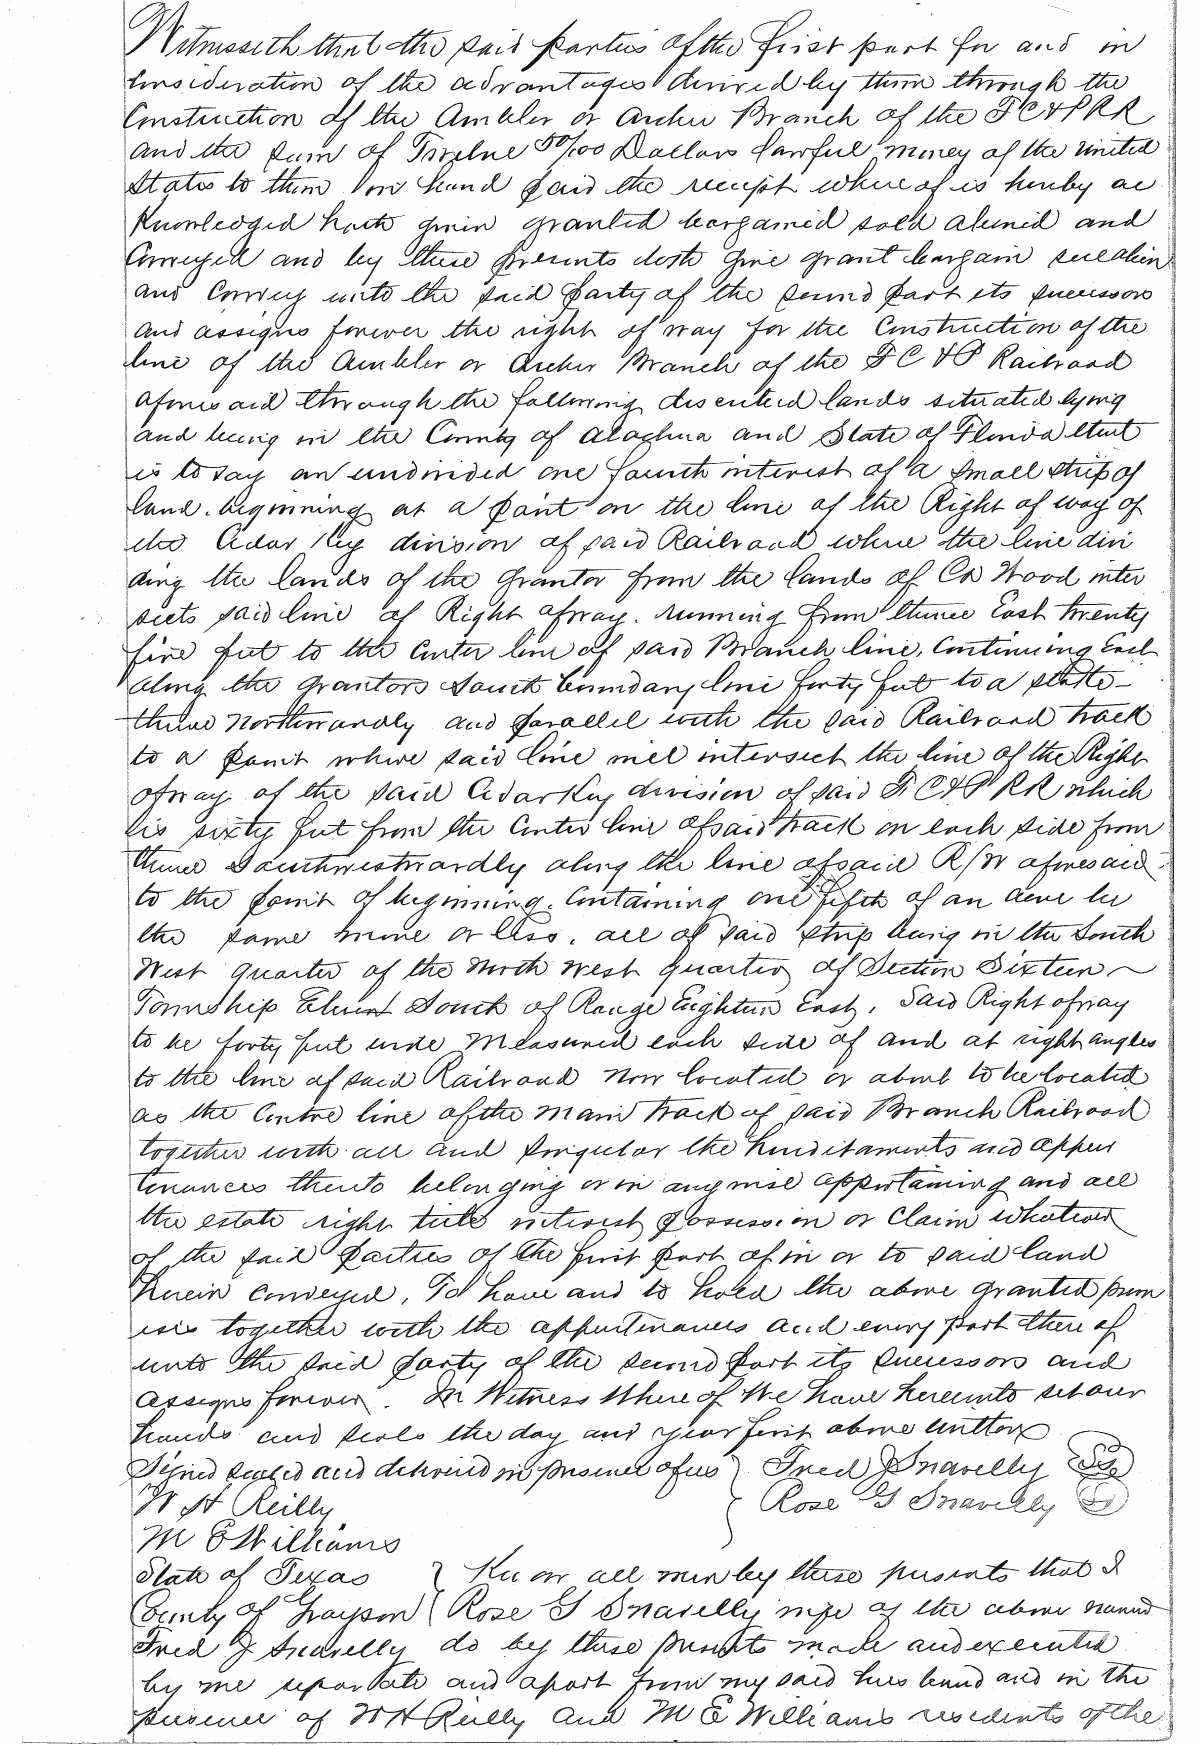 Witnesseth that the said parties of the first part for and in
Consideration of the advantages derived by them through the
Construction of the Ambler or Archer Branch of the F C & P R R
and the sum of Twelve 50/100 Dollars lawful money of the United
States to them in hand paid the receipt where of is hereby ac
knowledged hath given granted bargained sold aliened and
Conveyed and by these presents doth give grant bargain sell alien
and Convey unto the said party of the second part its successors
and assigns forever the right of way for the Construction of the
line of the Ambler or Archer Branch of the F C & P Railroad
aforesaid through the following discribed lands situated lying
and being in the County of Alachua and State of Florida that
is to say an undivided one fourth interest of a small strip of
land. beginning at a point on the line of the Right of way of
the Cedar Key division of said Railroad where the line divi
ding the lands of the Grantor from the lands of Wood inter
sects said line of Right of way. running from thence East twenty
five feet to the Center line of said Branch line, Continuing East
along the grantors South boundary line forty feet to a stake
thence Northwardly and parallel with the said Railroad track
to a point where said line will intersect the line of the Right
of way of the said Cedar Key division of said F C & P R R which
is sixty feet from the Center line of said track on each side from
thence Southwestwardly along the line of said R/W aforesaid
to the point of beginning. Containing one fifth of an acre be
the same more or less, all of said strip being in the South
West quarter of the North West quarter of Section Sixteen
Township Eleven South of Range Eighteen East, Said Right of way
to be forty feet wide Measured each side of and at right angles
to the line of said Railroad now located or about to be located
as the Centre line of the main track of said Branch Railroad
together with all and singular the hereditaments and appur
tenances thereto belonging or in any wise appertaining and all
the estate right title interest possession or claim whatever
of the said parties of the first part of in or to said land
herein conveyed, To have and to hold the above granted prem
ises together with the appurtenances and every part there of
unto the said party of the second part its successors and
assigns forever. In Witness Where of We have hereunto set our
hands and seals the day and year first above written
Signed sealed and delivered in presence of us } Fred J Snavelly
W H Reilly { Rose G Snavelly
M E Williams
State of Texas } Know all men by these presents that I
County of Grayson { Rose G Snavelly wife of the above named
Fred J Snavelly do by these presents made and executed
by me separate and apart from my said hus band and in the
presence of W H Reilly and M E Williams residents of the